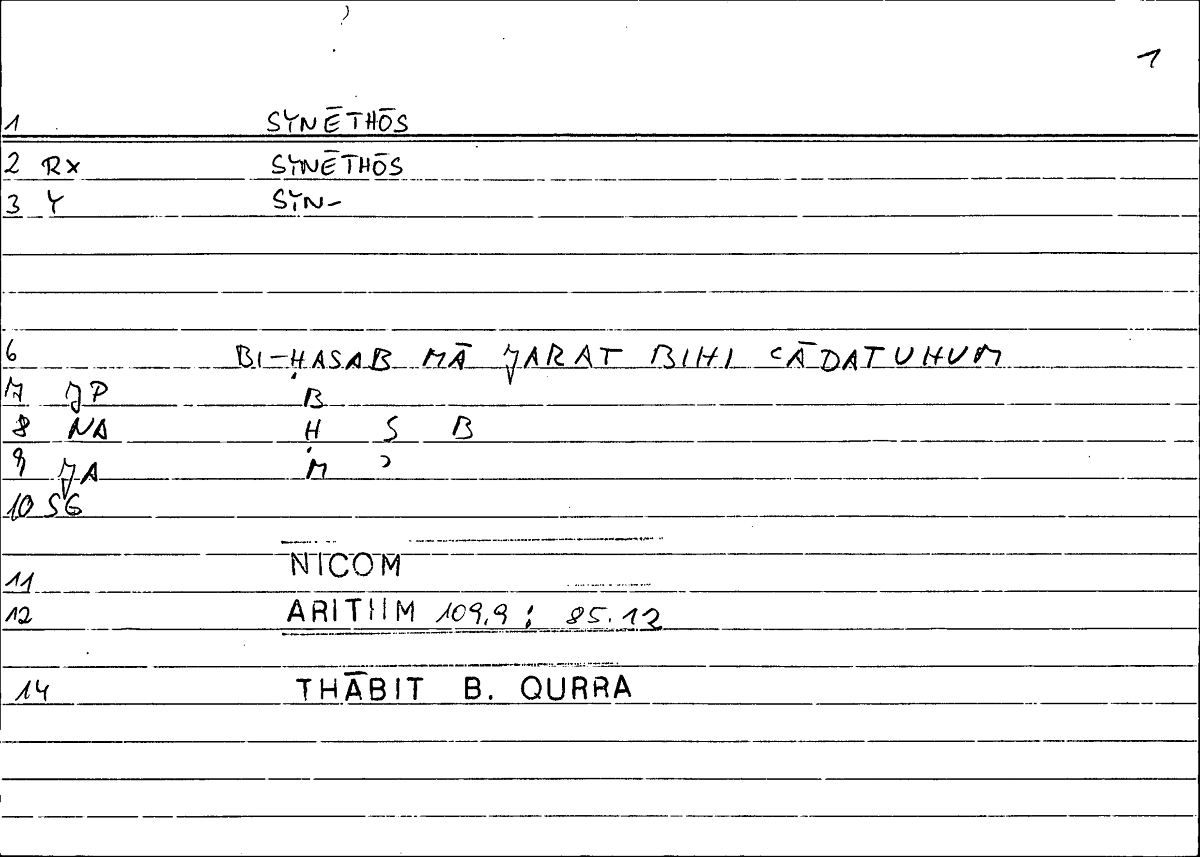 1
1 SYNĒTHŌS
2 RX SYNĒTHŌS
3 Y SYN-
6 BI-ḤASAB MĀ J̌ARAT BIHI ʿĀDATUHUM
7 JP B
8 NA Ḥ S B
9 J̌A M ʾ
10 SG
11 NICOM
12 ARITHM 109.9 ; 85.12
14 THĀBIT B. QURRA